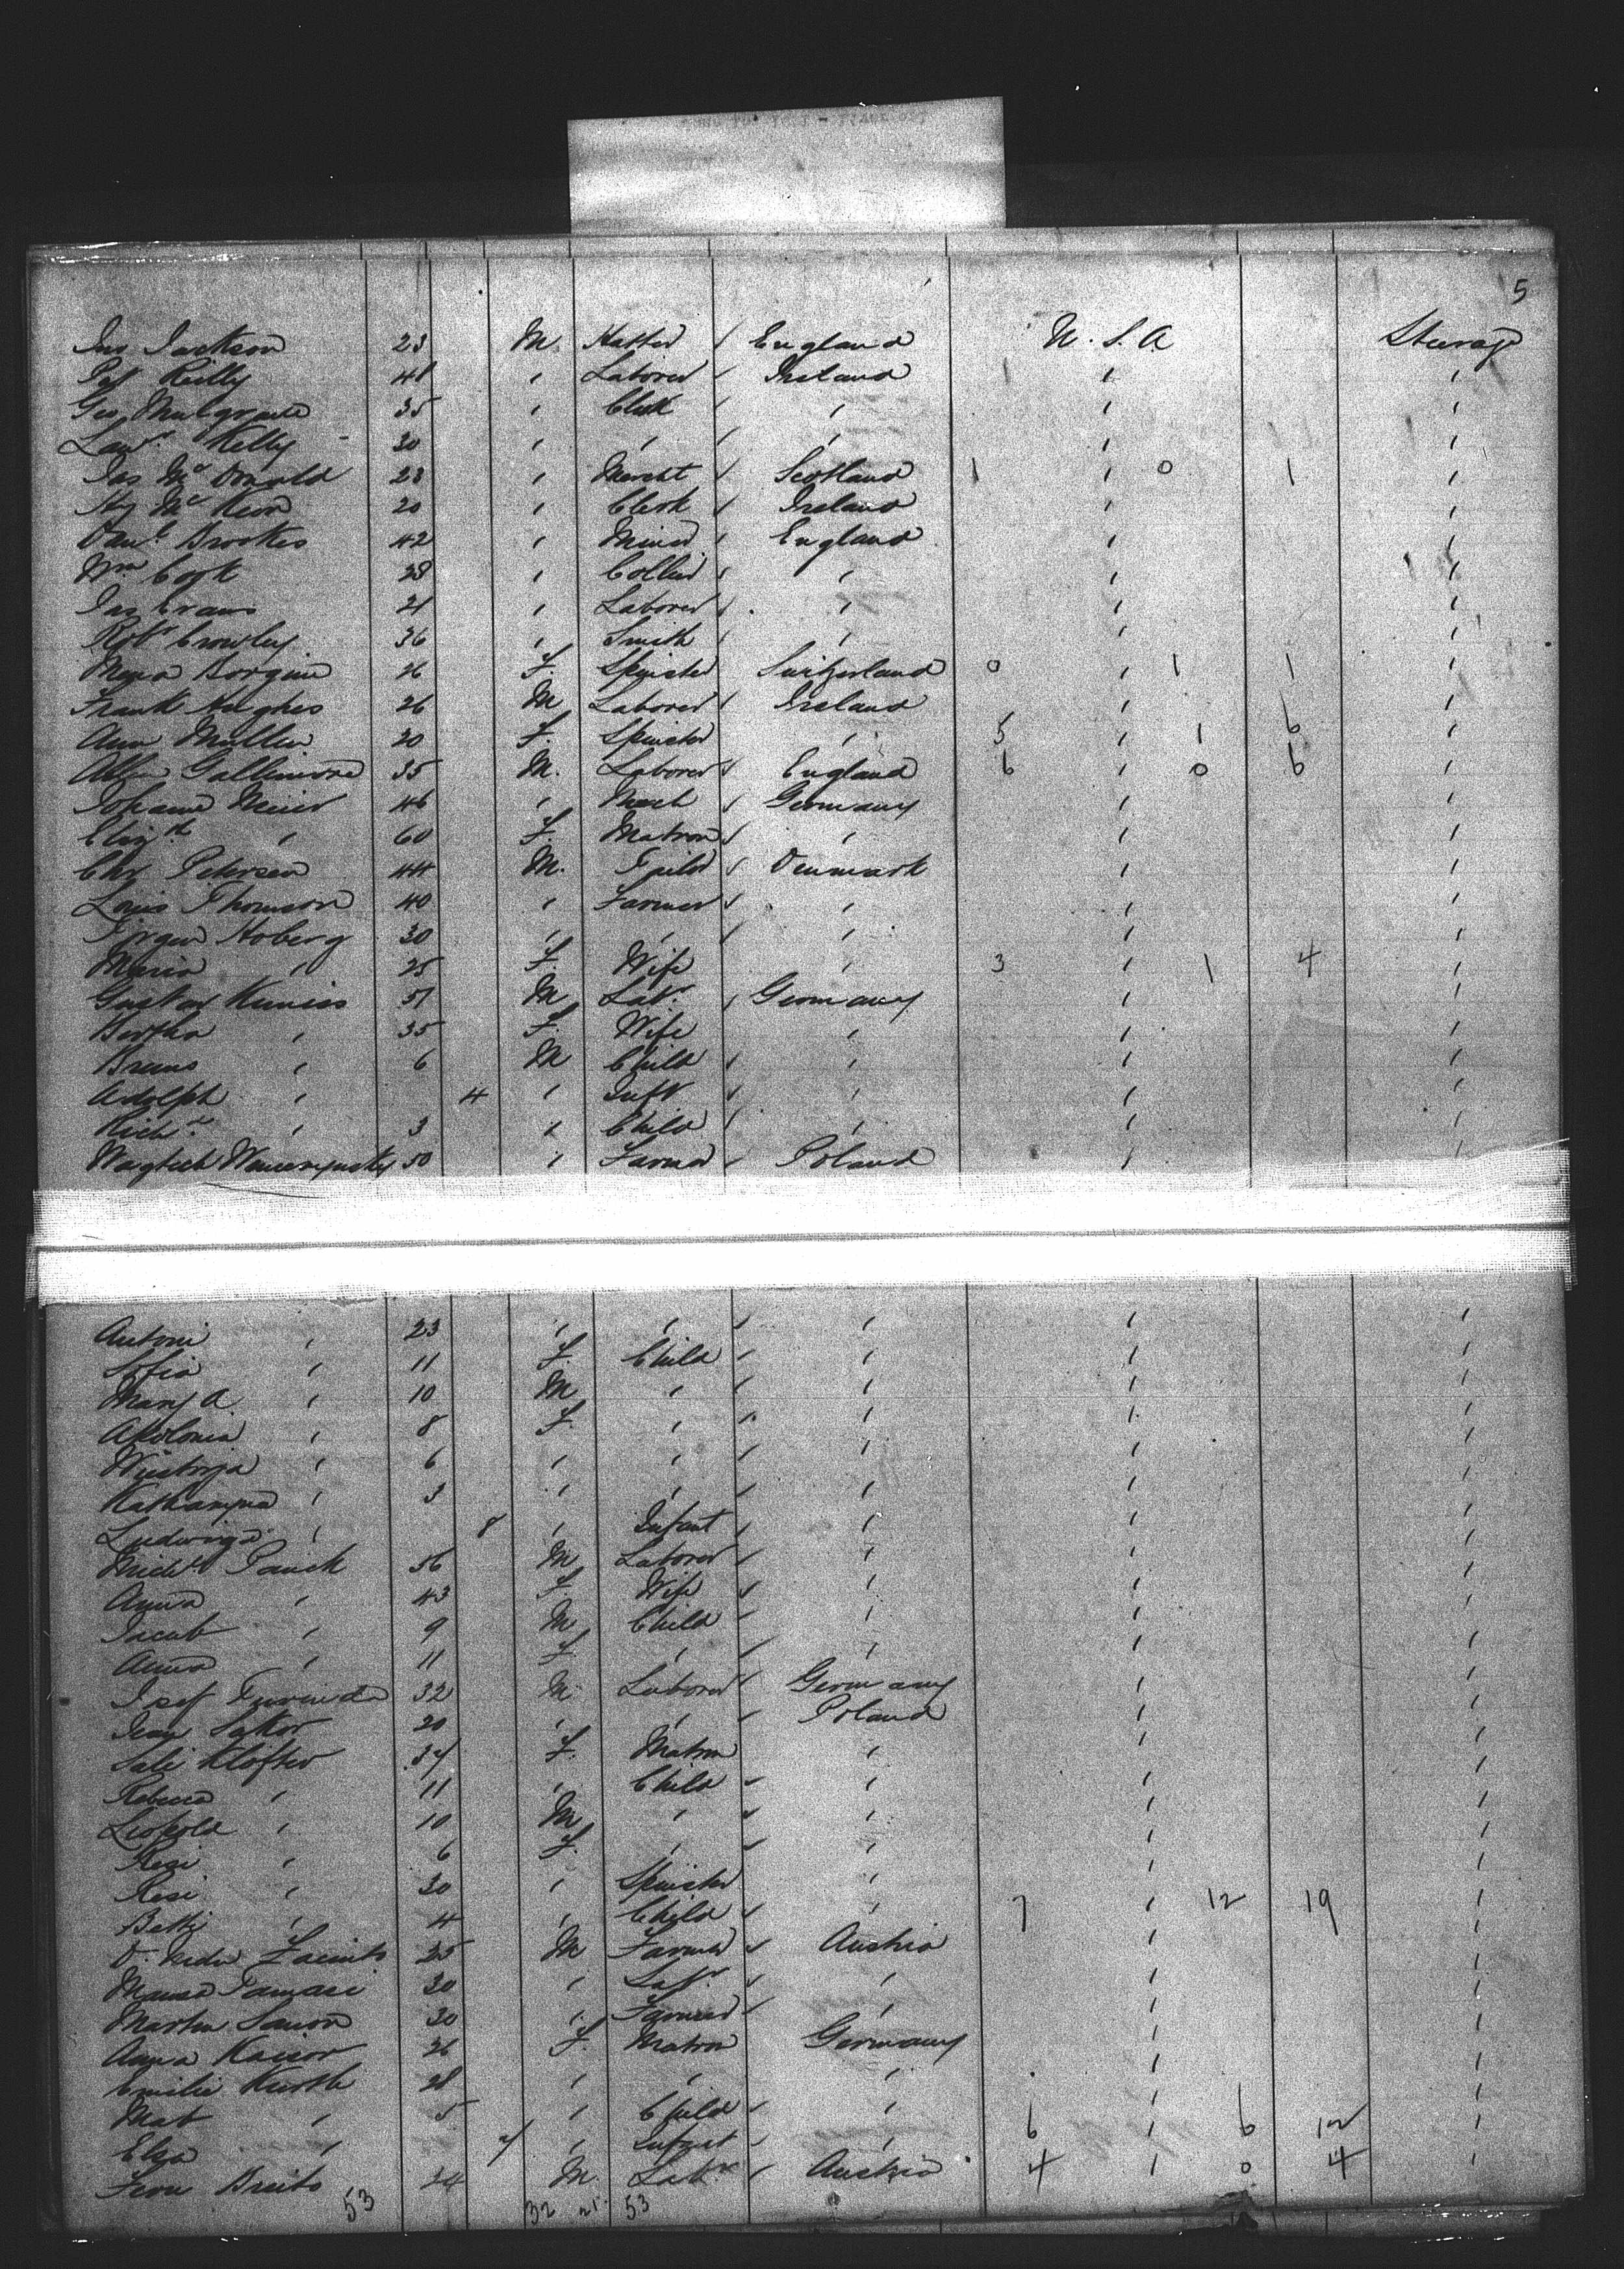 5
Jas Jackson 23 M Hatter England U.S.A. Steerage
Pat Reilly 48 " Laborer Ireland " "
Geo. Mulgrave 35 " Clerk " " "
Lawr. Kelly 30 " " " " "
Jas McDonald 23 " Mercht Scotland 1 " 0 1 "
Hy McKeon 20 " Clerk Ireland " "
Danl Brookes 42 " Miner England " "
Wm Cook 28 " Collier " " "
Jas Evans 21 " Laborer " " "
Robt Crowley 36 " Smith " " "
Maria 26 F. Spinster Switzerland 0 " 1 1 "
Frank Hughes 26 M Laborer Ireland " "
Ann Mullen 20 F. Spinster " 5 " 1 6 "
Gallimore 35 M. Laborer England 6 " 0 6 "
Johann Meier 46 " Mech Germany " "
Elizth " 60 F. Matron " " "
Chr Petersen 44 M. Denmark " "
Louis Thomson 40 " Farmer " " "
Jorgen Hoberg 30 " " " " "
Maria " 25 F. Wife " 3 " 1 4 "
Gustav Kuniss 51 M Labr. Germany " "
Bertha " 35 F. Wife " " "
Bruno " 6 M Child " " "
Adolph " 4 " Inft " " "
Richd. " 3 " Child " " "
50 " Farmer Poland " "
Antoni " 23 " " " " "
Sofia " 11 F. Child " " "
Mary A. " 10 M " " " "
Apolonia " 8 F. " " " "
" 6 " " " " "
" 3 " " " " "
Ludwiga " 8 " Infant " " "
Michl Panek 56 M Laborer " " "
Anna " 43 F. Wife " " "
Jacob " 9 M Child " " "
Anna " 11 F. " " " "
32 M. Laborer Germany " "
20 " " Poland " "
Sali Klofter 34 F. Matron " " "
Rebecca " 11 " Child " " "
Leopold " 10 M " " " "
Resi " 6 F. " " " "
Resi " 30 " Spinster " " "
Betti " 4 " Child " 7 " 12 19 "
25 M Farmer Austria " "
Tamasi 30 " Labr. " " "
Martin 30 " Farmer " " "
Anna Kaiser 26 F. Matron Germany " "
Emilie Kurth 28 " " " " "
" 5 " Child " 6 " 6 12 "
Elsa " 7 " Infant " " "
24 M. Labr Austria 4 " 0 4 "
53 32 21 53